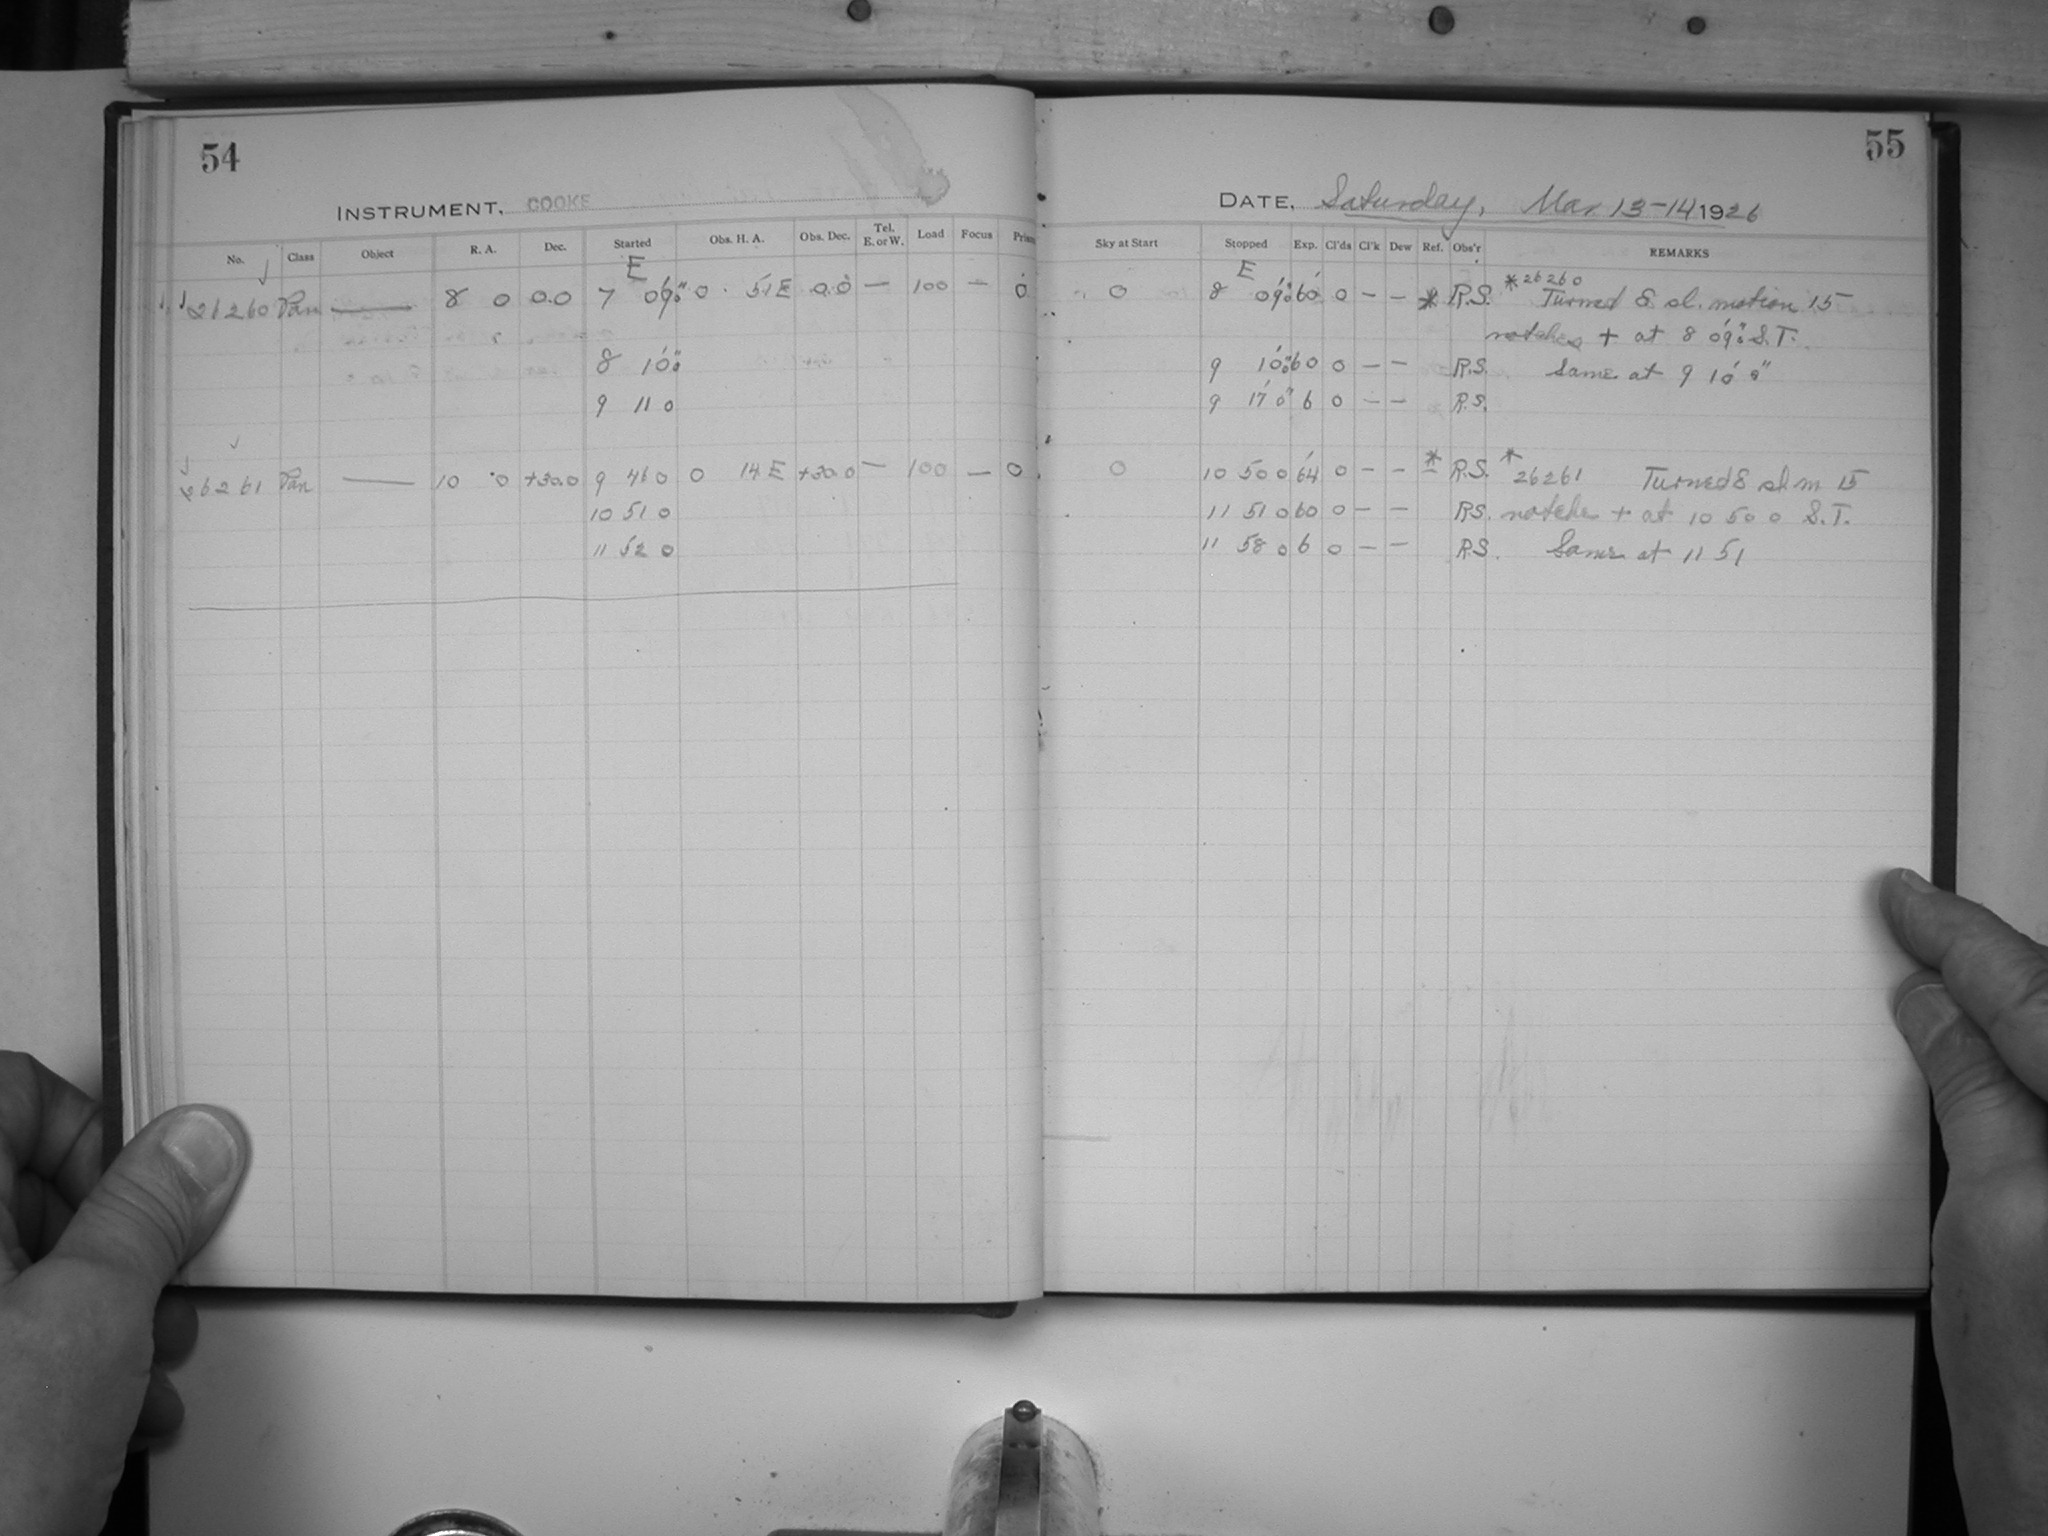 54
55
INSTRUMENT, COOKE
DATE, Saturday, Mar 13-14 1926
No. Class Object R. A. Dec. Started Obs. H. A. Obs. Dec. Tel. E. or W. Load Focus Sky at Start Stopped Exp. Cl'ds Cl'k Dew Ref. Obs'r REMARKS
E E
26260 Pan — 8 0 0.0 7 09 0 0 51 E 0.0 — 100 — 0 0 8 09 0 60 0 — — * R.S. * 26260 Turned E sl. motion 15
notches + at 8 09 0 S.T.
8 10 0 9 10 0 60 0 — — R.S. Same at 9 10 0
9 11 0 9 17 0 6 0 — — R.S.
26261 Pan — 10 0 +30.0 9 46 0 0 14 E +30.0 — 100 — 0 0 10 50 0 64 0 — — * R.S. * 26261 Turned E sl m 15
10 51 0 11 51 0 60 0 — — RS. notches + at 10 50 0 S.T.
11 52 0 11 58 0 6 0 — — RS. Same at 11 51